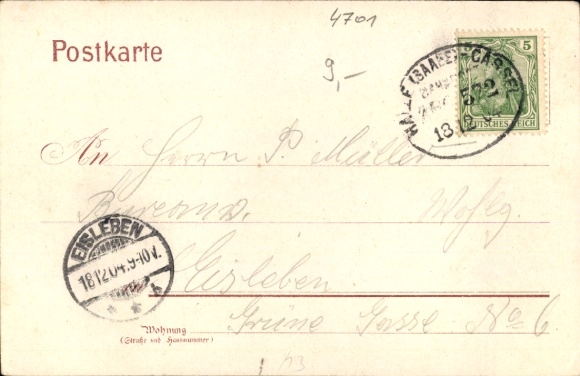 4701
Postkarte
9,-
5
DEUTSCHES REICH
HALLE (SAALE)-CASSEL
572
18.12
An Herrn P. Müller
Wohlg.
EISLEBEN
18.12.04.9-10V.
Eisleben
Grüne Gasse No 6.
Wohnung
(Straße und Hausnummer)